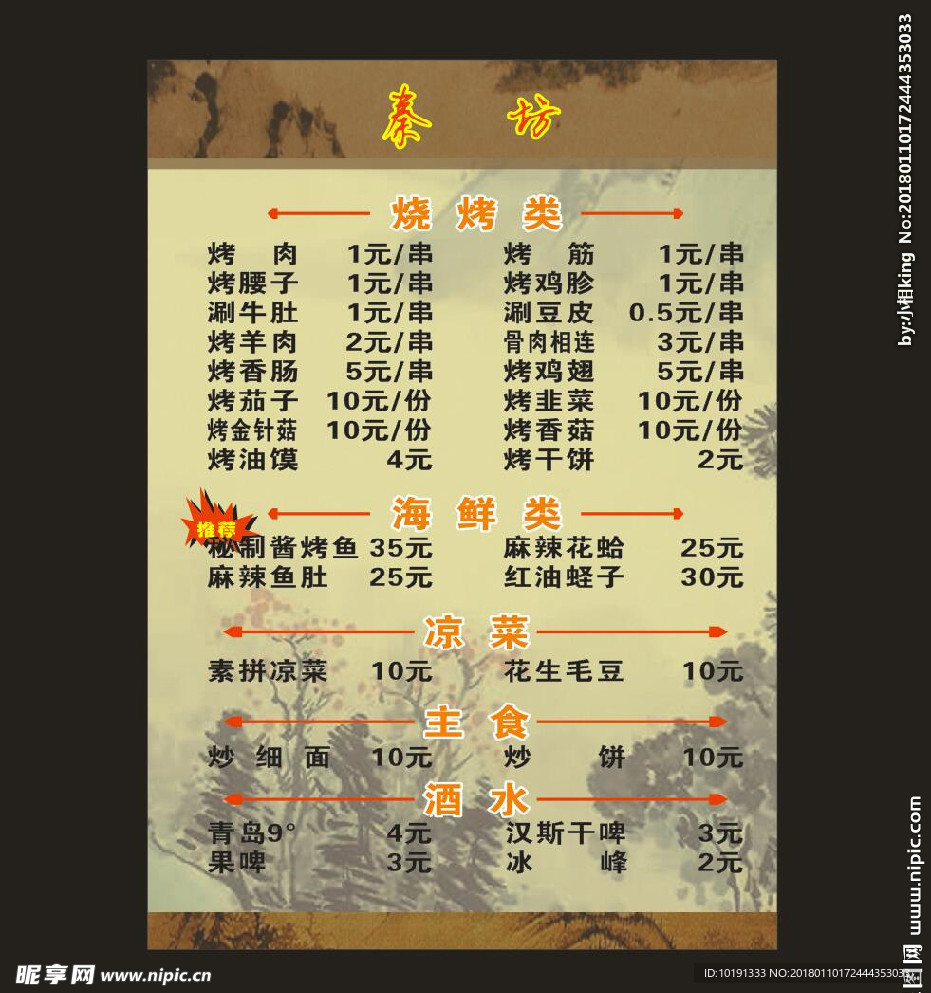 秦 坊
烧 烤 类
烤 肉 1元/串 烤 筋 1元/串
烤腰子 1元/串 烤鸡胗 1元/串
涮牛肚 1元/串 涮豆皮 0.5元/串
烤羊肉 2元/串 骨肉相连 3元/串
烤香肠 5元/串 烤鸡翅 5元/串
烤茄子 10元/份 烤韭菜 10元/份
烤金针菇 10元/份 烤香菇 10元/份
烤油馍 4元 烤干饼 2元
海 鲜 类
推荐
秘制酱烤鱼 35元 麻辣花蛤 25元
麻辣鱼肚 25元 红油蛏子 30元
凉 菜
素拼凉菜 10元 花生毛豆 10元
主 食
炒 细 面 10元 炒 饼 10元
酒 水
青岛9° 4元 汉斯干啤 3元
果啤 3元 冰 峰 2元
by:小相king No:20180110172444353033
www.nipic.com
昵享网 www.nipic.cn
ID:10191333 NO:20180110172444353033